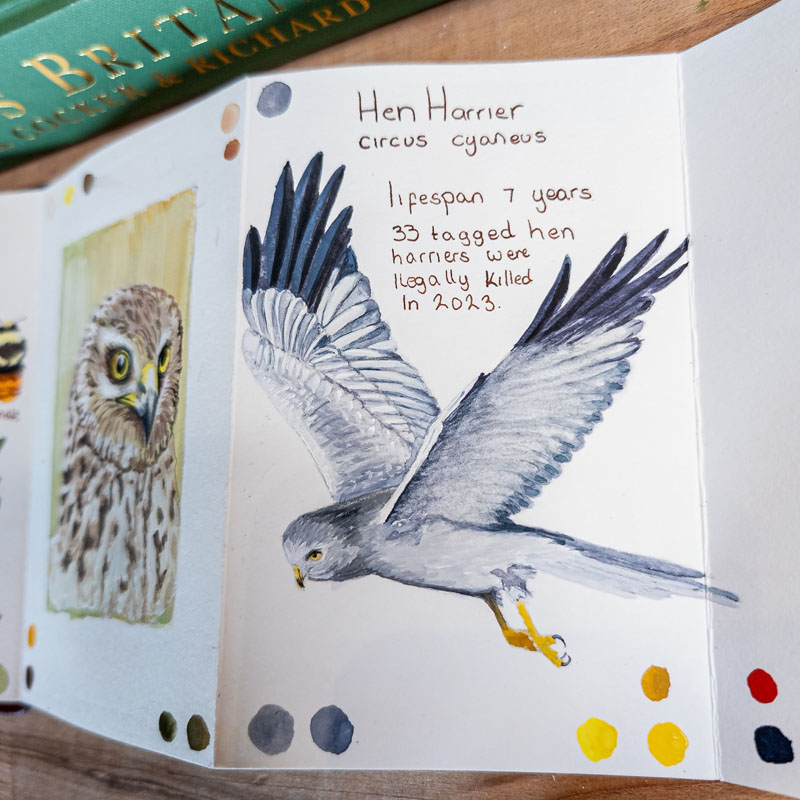 S BRITAN
COCKER & RICHARD
Hen Harrier
circus cyaneus
lifespan 7 years
33 tagged hen
harriers were
Ilegally killed
In 2023.